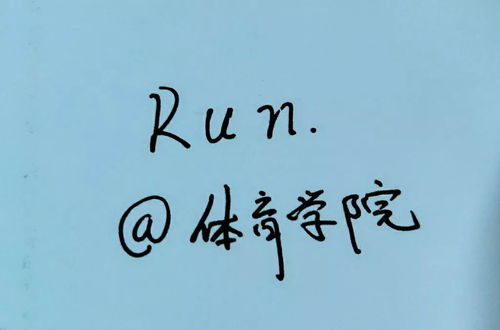 Run.
@体育学院